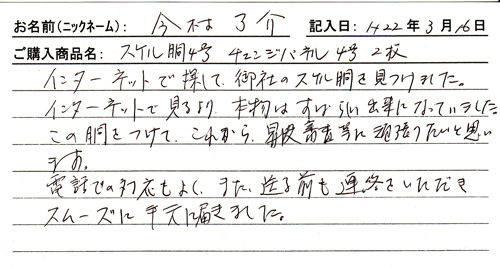 お名前(ニックネーム): 今村 了介 記入日: H22年3月16日
ご購入商品名: スケル胴4号 チェンジパネル4号 2枚
インターネットで探して、御社のスケル胴を見つけました。
インターネットで見るより、本物はすばらしい出来になっていました。
この胴をつけて、これから、昇段審査等に頑張りたいと思い
ます。
電話での対応もよく、また、送る前も連絡をいただき
スムーズに手元に届きました。